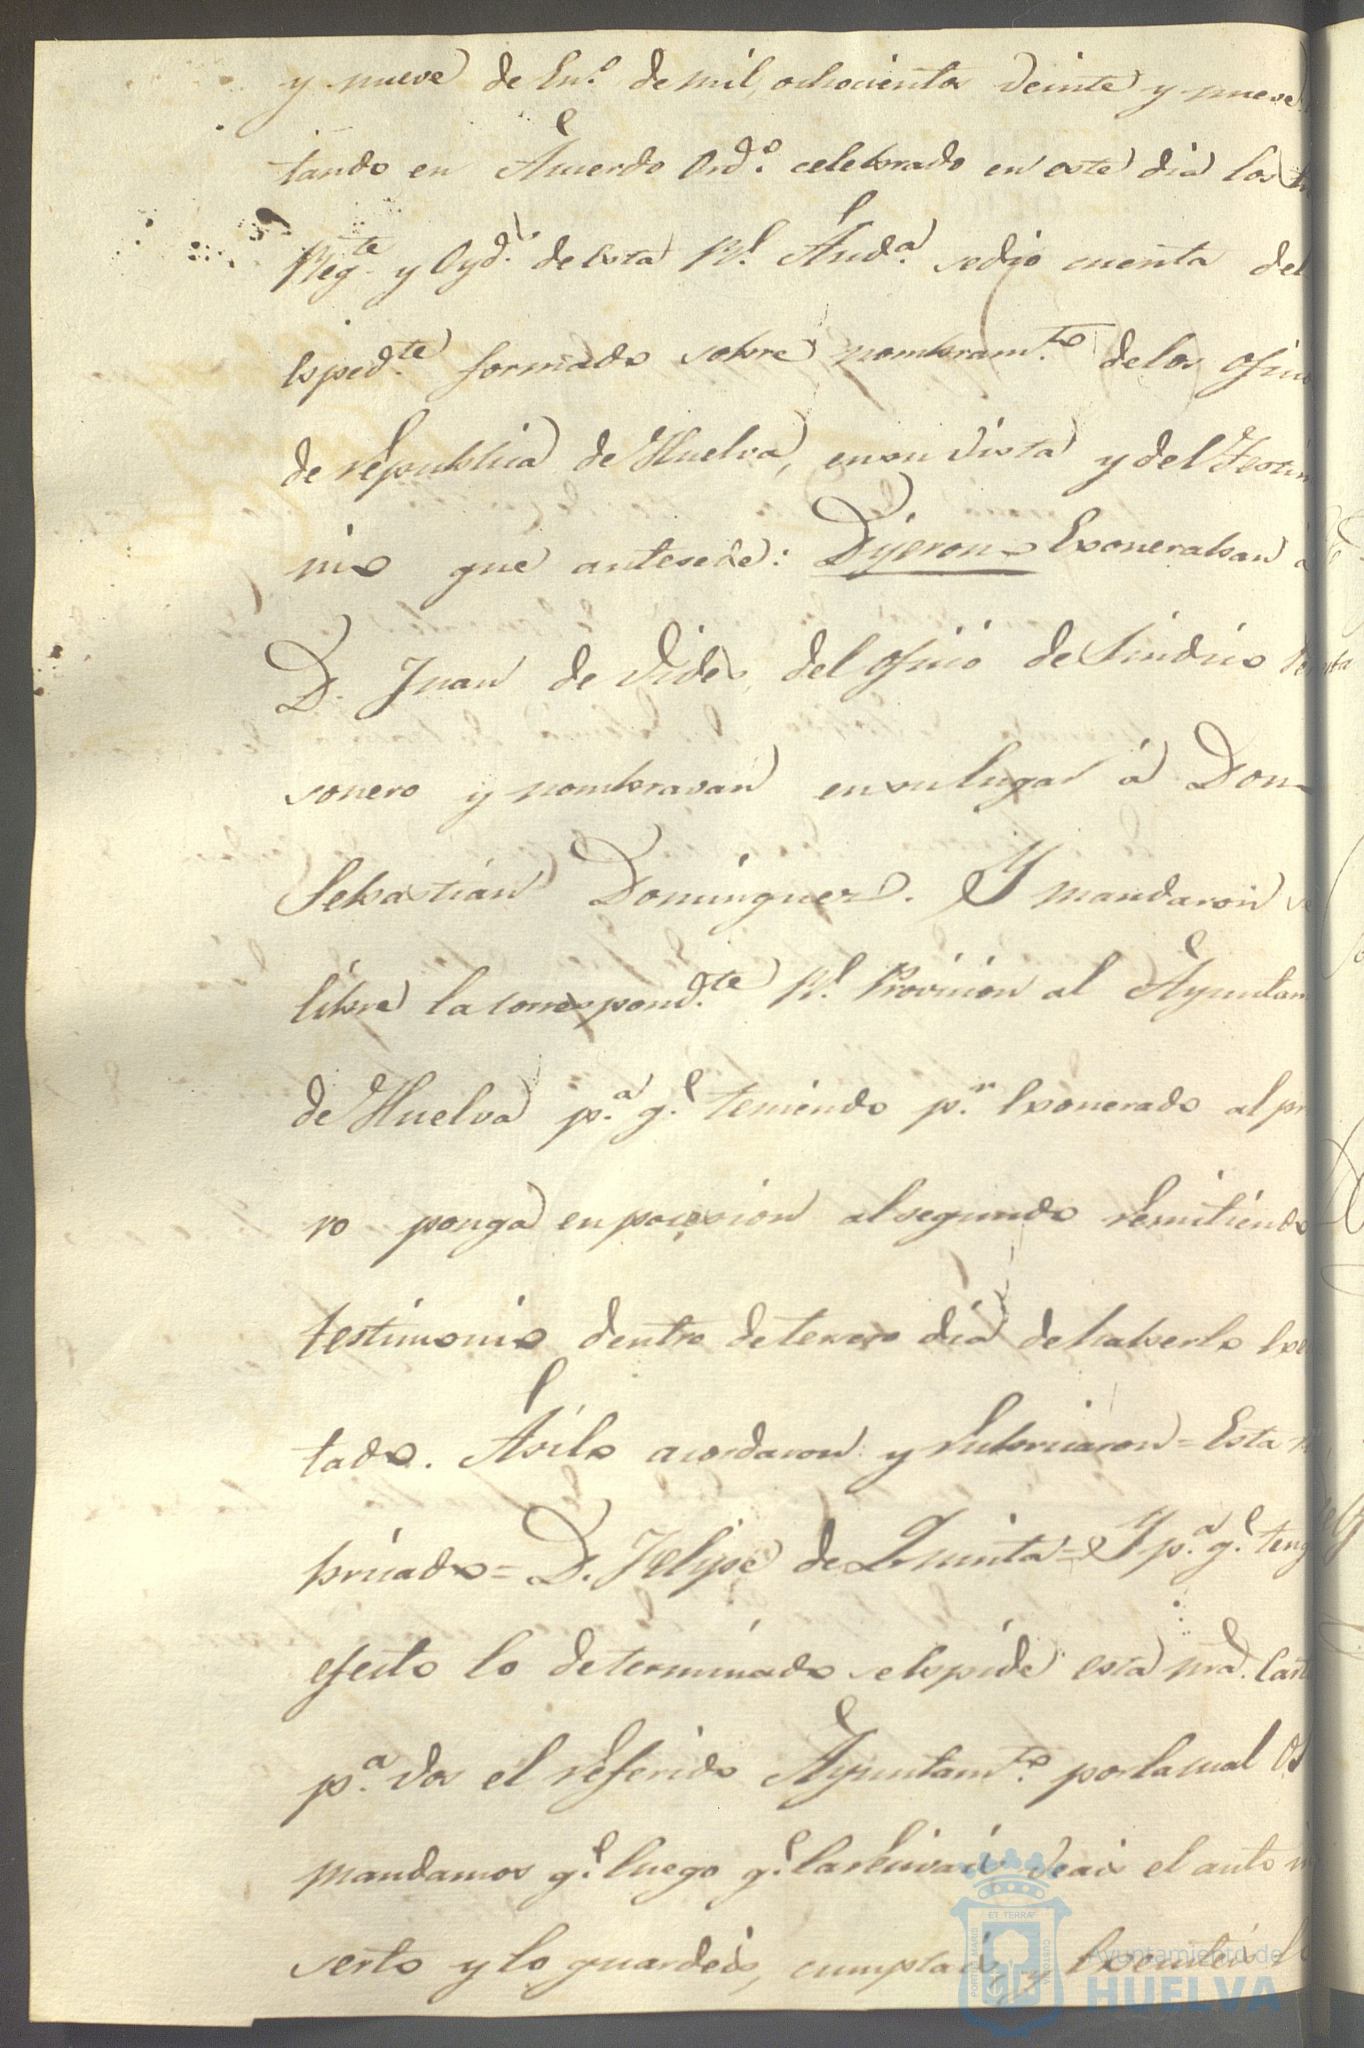 y nueve de En.º de mil, ochocientos veinte y nueve
tando en Acuerdo Ord.º celebrado en este dia los
Reg.te y Oyd.s de esta R.l Aud.a se dio cuenta del
Esped.te formado sobre nombram.to de los ofici
de republica de Huelva, en su vista y del Testim
nio que antesede: Dijeron Exoneraban a
D. Juan de Vides, del oficio de Sindico Per
sonero y nombravan en su lugar á Don
Sebastian Dominguez. Y mandaron se
libre la correspond.te R.l Provicion al Ayuntam
de Huelva p.a q.e teniendo p.r Exonerado al pri
ro ponga en pocesion al segundo remitiendo
testimonio dentro de tercero dia de haberlo Exe
tado. Asi lo acordaron y rubricaron = Esta
bricado = D. Felipe de Quinta = Y p.a q.e teng
efecto lo determinado se espide esta nra. Cart
p.a vos el referido Ayuntam.to por la cual Os
mandamos q.e luego q.e la recivais veais el auto in
serto y lo guardeis, cumplais, y Executeis
Ayuntamiento de
HUELVA
PORTUS MARIS ET TERRAE CUSTODIA